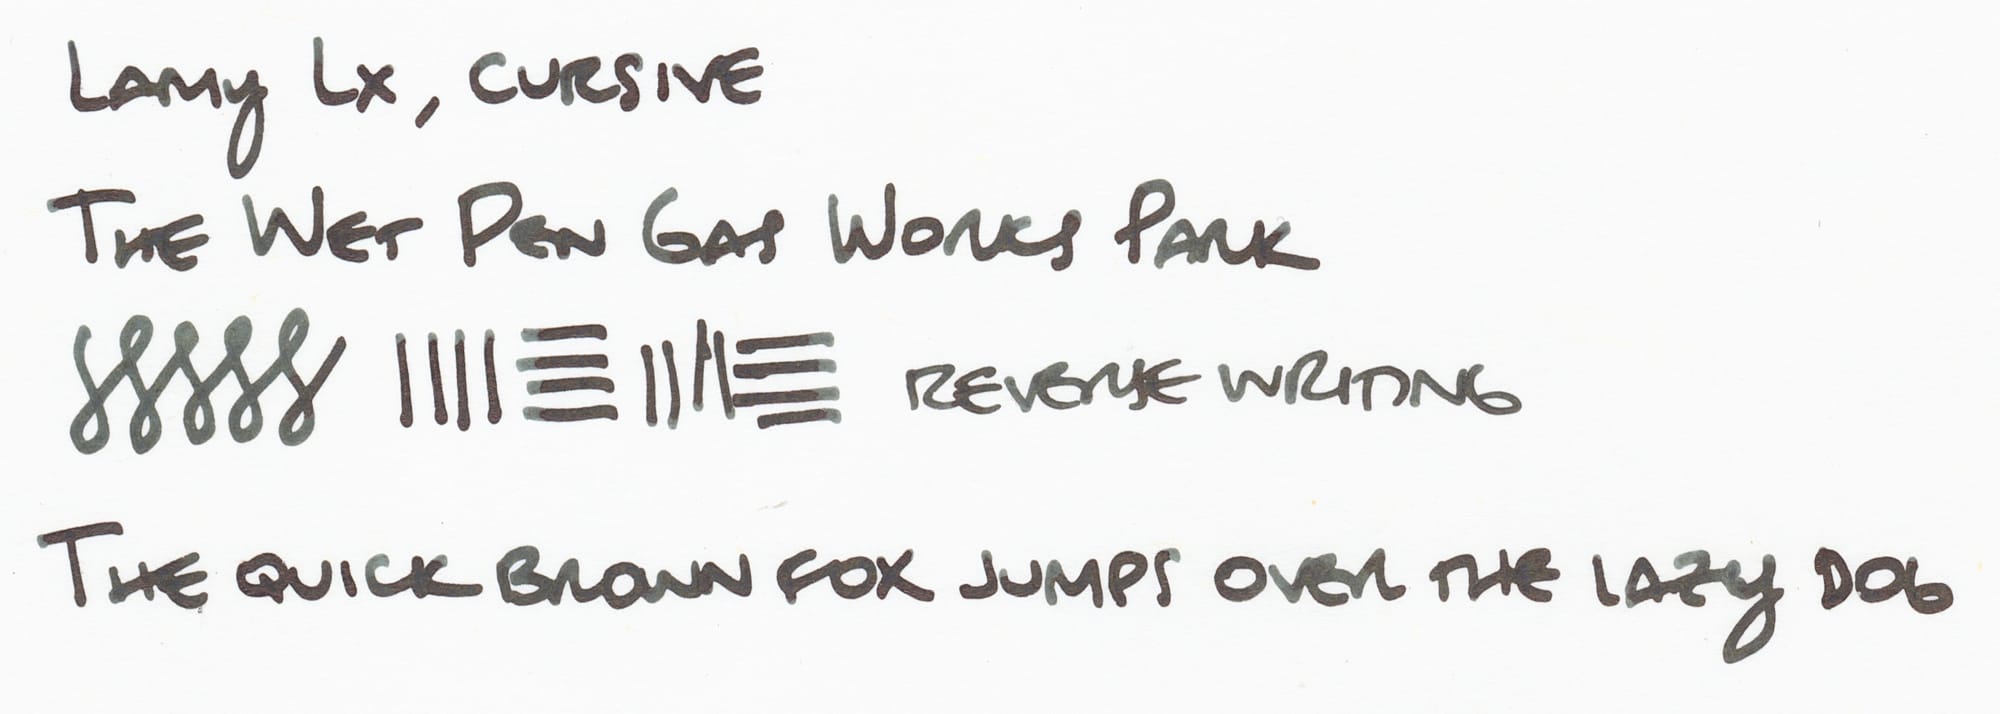 Lamy Lx, CURSIVE
THE WET PEN GAS WORKS PARK
REVERSE WRITING
THE QUICK BROWN FOX JUMPS OVER THE LAZY DOG